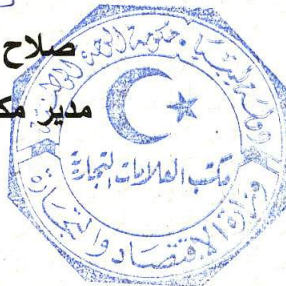 صلاح
مدير مك
دولة ليبيا حكومة الوحدة الوطنية
مكتب العلامات التجارية
وزارة الاقتصاد والتجارة